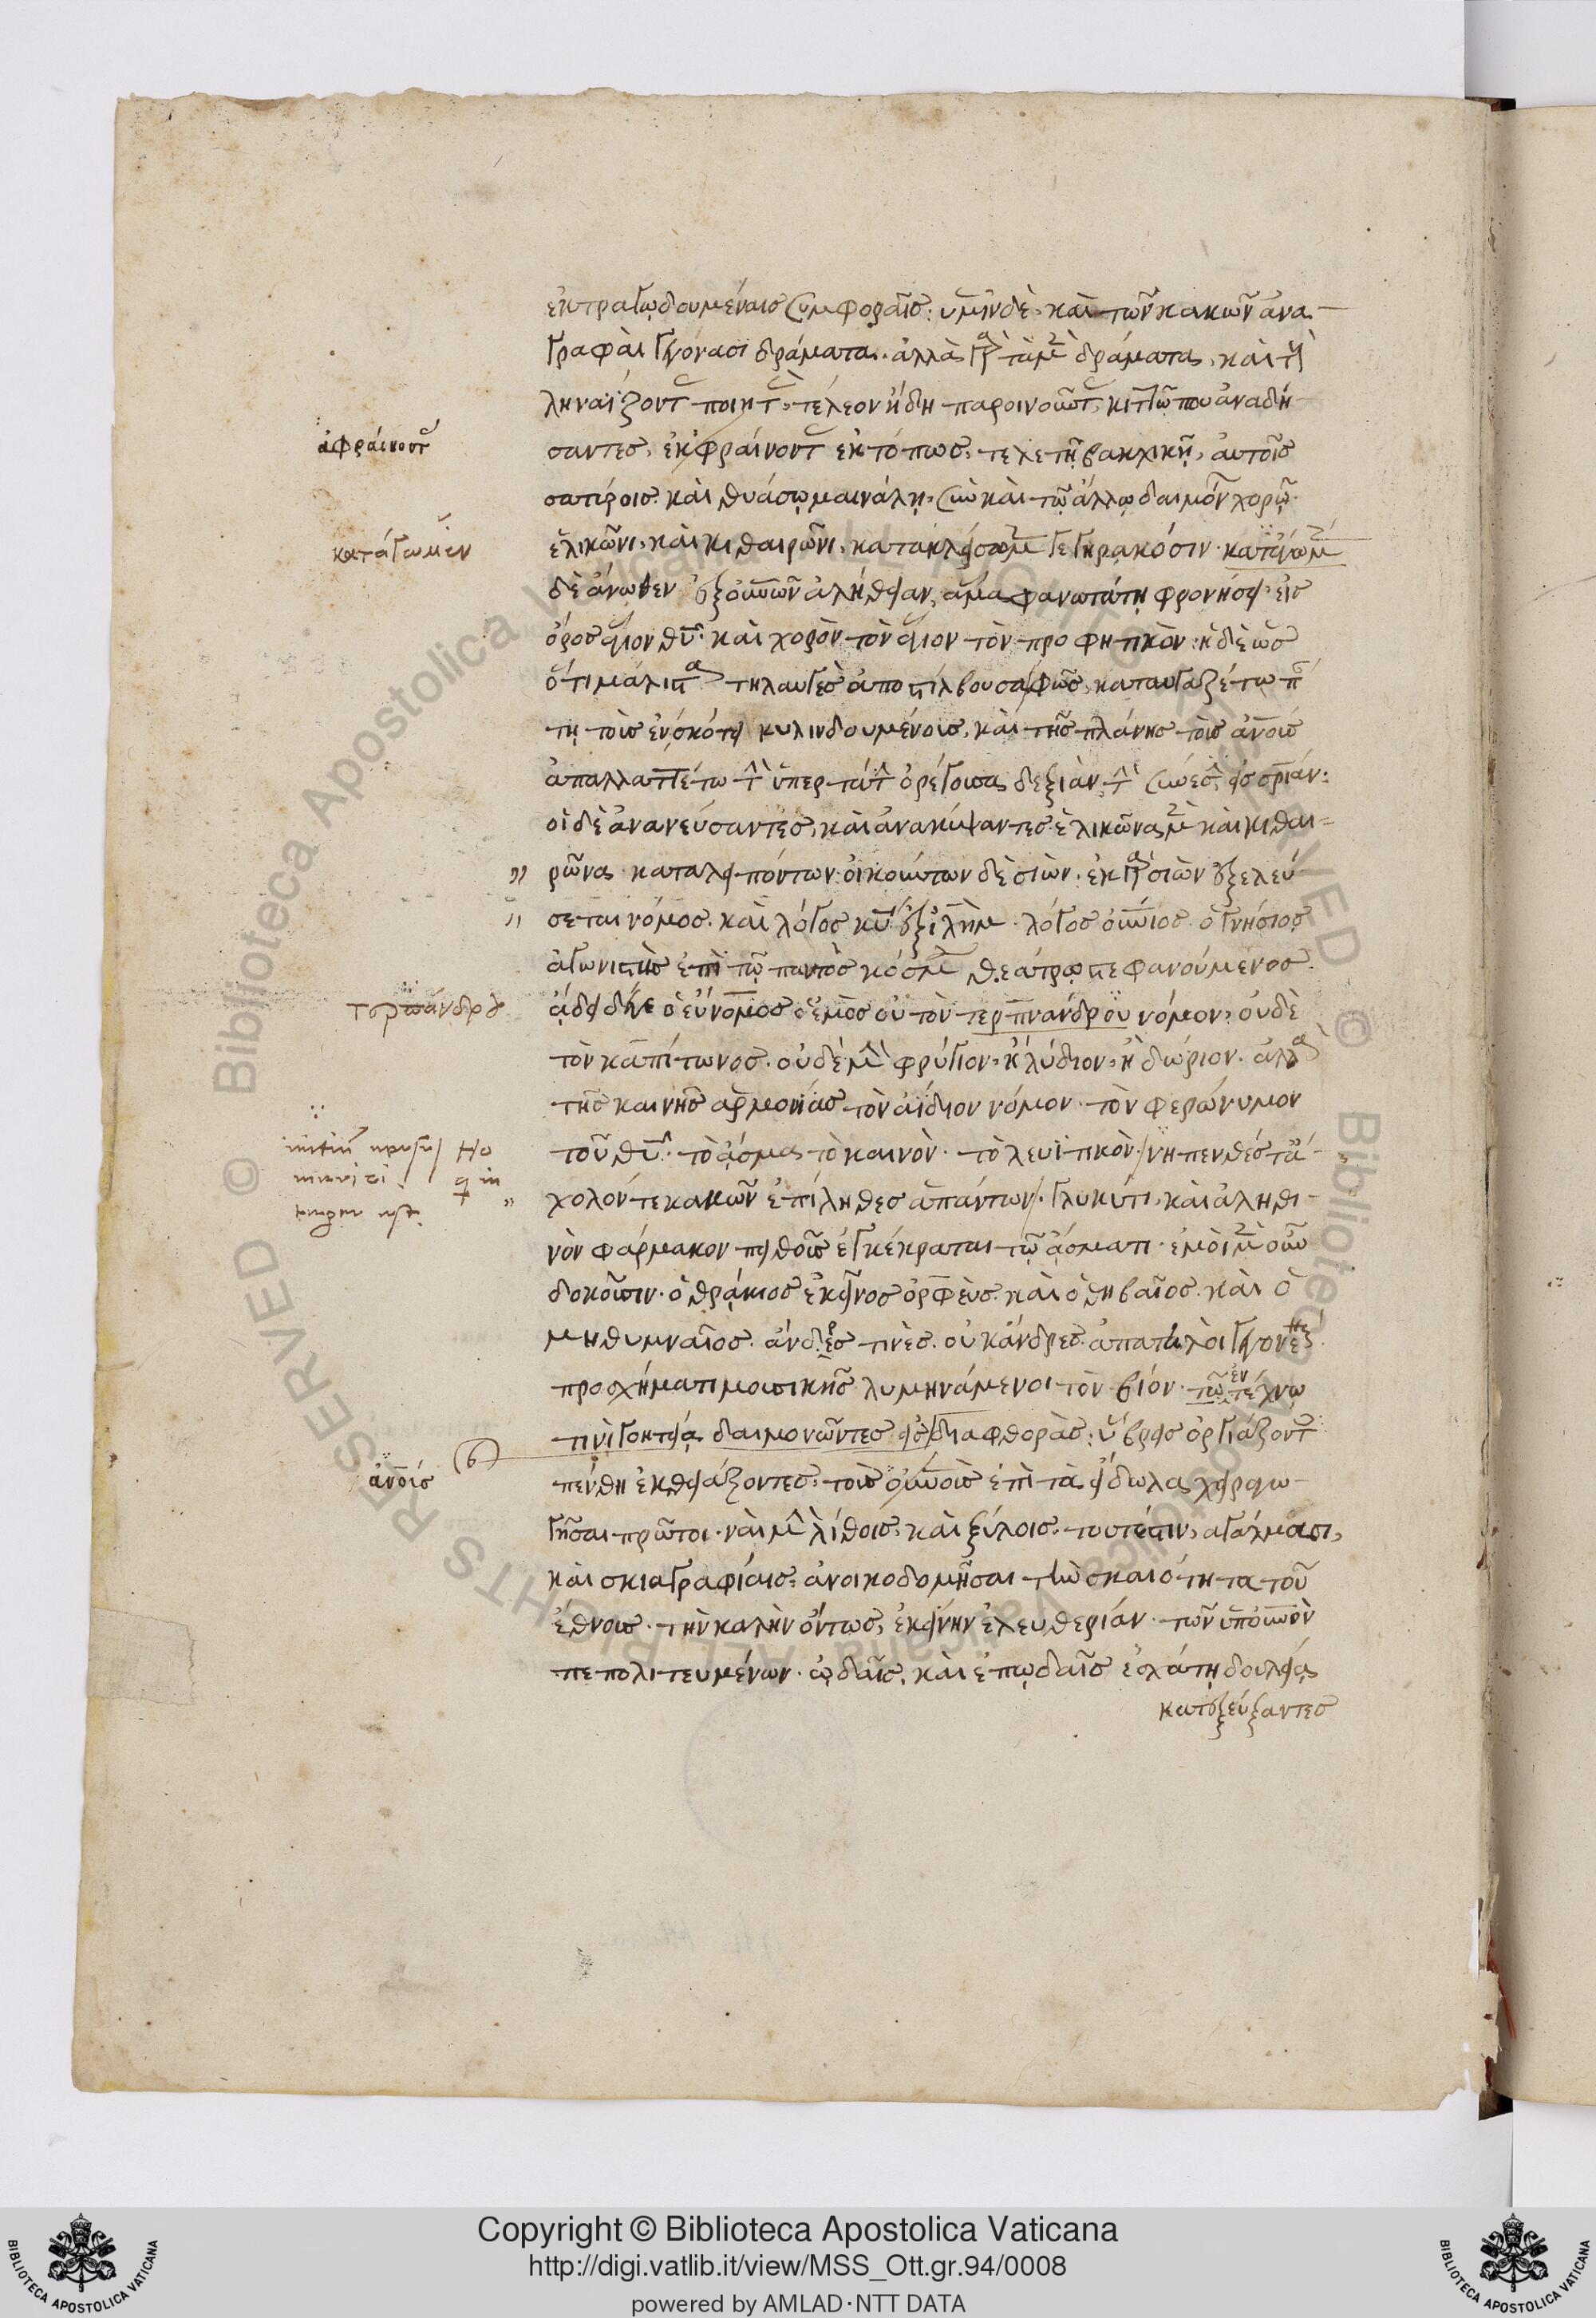 ἐκτραγῳδουμέναις συμφοραῖς· ὑμῖν δὲ καὶ τῶν κακῶν ἀνα-
γραφαὶ γεγόνασι δράματα. ἀλλὰ γὰρ τὰ μὲν δράματα, καὶ τοὺς
ληναΐζοντας ποιητὰς, τέλεον ἤδη παροινοῦντας, κιττῷ που ἀναδή-
ἀφραίνοντας
σαντες, ἐκφραίνοντας ἐκτόπως, τελετῇ βακχικῇ, αὐτοῖς
σατύροις καὶ θιάσῳ μαινόλῃ, σὺν καὶ τῷ ἄλλῳ δαιμόνων χορῷ·
κατάγωμεν
ἑλικῶνι, καὶ κιθαιρῶνι, κατακλείσωμεν γεγηρακόσιν·
δὲ ἄνωθεν ἐξ οὐνῶν ἀλήθειαν, ἅμα φανωτάτῃ φρονήσει, εἰς
ὄρος ἅγιον θῦ· καὶ χορὸν τὸν ἅγιον τὸν προφητικόν· ἡ δὲ ὡς
ὅτι μάλιστα τηλαυγὲς ἀποστίλβουσα φῶς, καταυγαζέτω πάν-
τῃ τοὺς ἐν σκότει κυλινδουμένους, καὶ τῆς πλάνης τοὺς ἀνους
ἀπαλλαττέτω τὴν ὑπερτάτην ὀρέγουσα δεξιὰν, τὴν σύνεσιν, εἰς σρίαν·
οἱ δὲ ἀνανεύσαντες, καὶ ἀνακύψαντες ἑλικῶνα μὲν καὶ κιθαι-
" ρῶνα καταλειπόντων· οἰκούντων δὲ σιών· ἐκ γὰρ σιὼν ἐξελεύ-
" σεται νόμος. καὶ λόγος κῦ ἐξ ἱλὴμ· λόγος οὐνιος· ὁ γνήσιος
ἀγωνιστὴς ἐπὶ τῷ παντὸς κόσμου θεάτρῳ στεφανούμενος.
τερπάνδρου
ᾄδει δέ γε ὁ εὔνομος ὁ ἐμὸς οὐ τὸν τερπνάνδρου νόμον, οὐδὲ
τὸν καπίτωνος. οὐδὲ μὴν φρύγιον, ἢ λύδιον, ἢ δώριον. ἀλλὰ
τῆς καινῆς ἁρμονίας τὸν ἀΐδιον νόμον· τὸν φερώνυμον
τοῦ θῦ· τὸ ᾆσμα τὸ καινὸν· τὸ λευϊτικὸν· νηπενθές τ' ἄ-
" χολόν τε κακῶν ἐπίληθες ἁπάντων· γλυκύ τι, καὶ ἀληθι-
νὸν φάρμακον πειθοῦς ἐγκέκραται τῷ ᾄσματι· ἐμοὶ μὲν οὖν
δοκοῦσιν· ὁ θρᾴκιος ἐκεῖνος ὀρφεὺς καὶ ὁ θηβαῖος. καὶ ὁ
μηθυμναῖος. ἄνδρες τινὲς οὐκ ἄνδρες. ἀπατηλοὶ γεγονέναι
προσχήματι μουσικῆς λυμηνάμενοι τὸν βίον· ἐν τέχνῳ
τινὶ γοητείᾳ δαιμονῶντες εἰς διαφθορὰς· ὕβρεις ὀργιάζοντες
ἀνους
πένθη ἐκθειάζοντες, τοὺς οὐνους ἐπὶ τὰ εἴδωλα χειραγω-
γῆσαι πρῶτοι· ναὶ μὴν λίθοις, καὶ ξύλοις. τουτέστιν, ἀγάλμασι,
καὶ σκιαγραφίαις, ἀνοικοδομῆσαι τὴν σκαιότητα τοῦ
ἔθνους· τὴν καλὴν ὄντως, ἐκείνην ἐλευθερίαν· τῶν ὑπ' οὐνὸν
πεπολιτευμένων· ᾠδαῖς, καὶ ἐπῳδαῖς ἐσχάτῃ δουλείᾳ
καταζεύξαντες
Copyright © Biblioteca Apostolica Vaticana
http://digi.vatlib.it/view/MSS_Ott.gr.94/0008
powered by AMLAD·NTT DATA